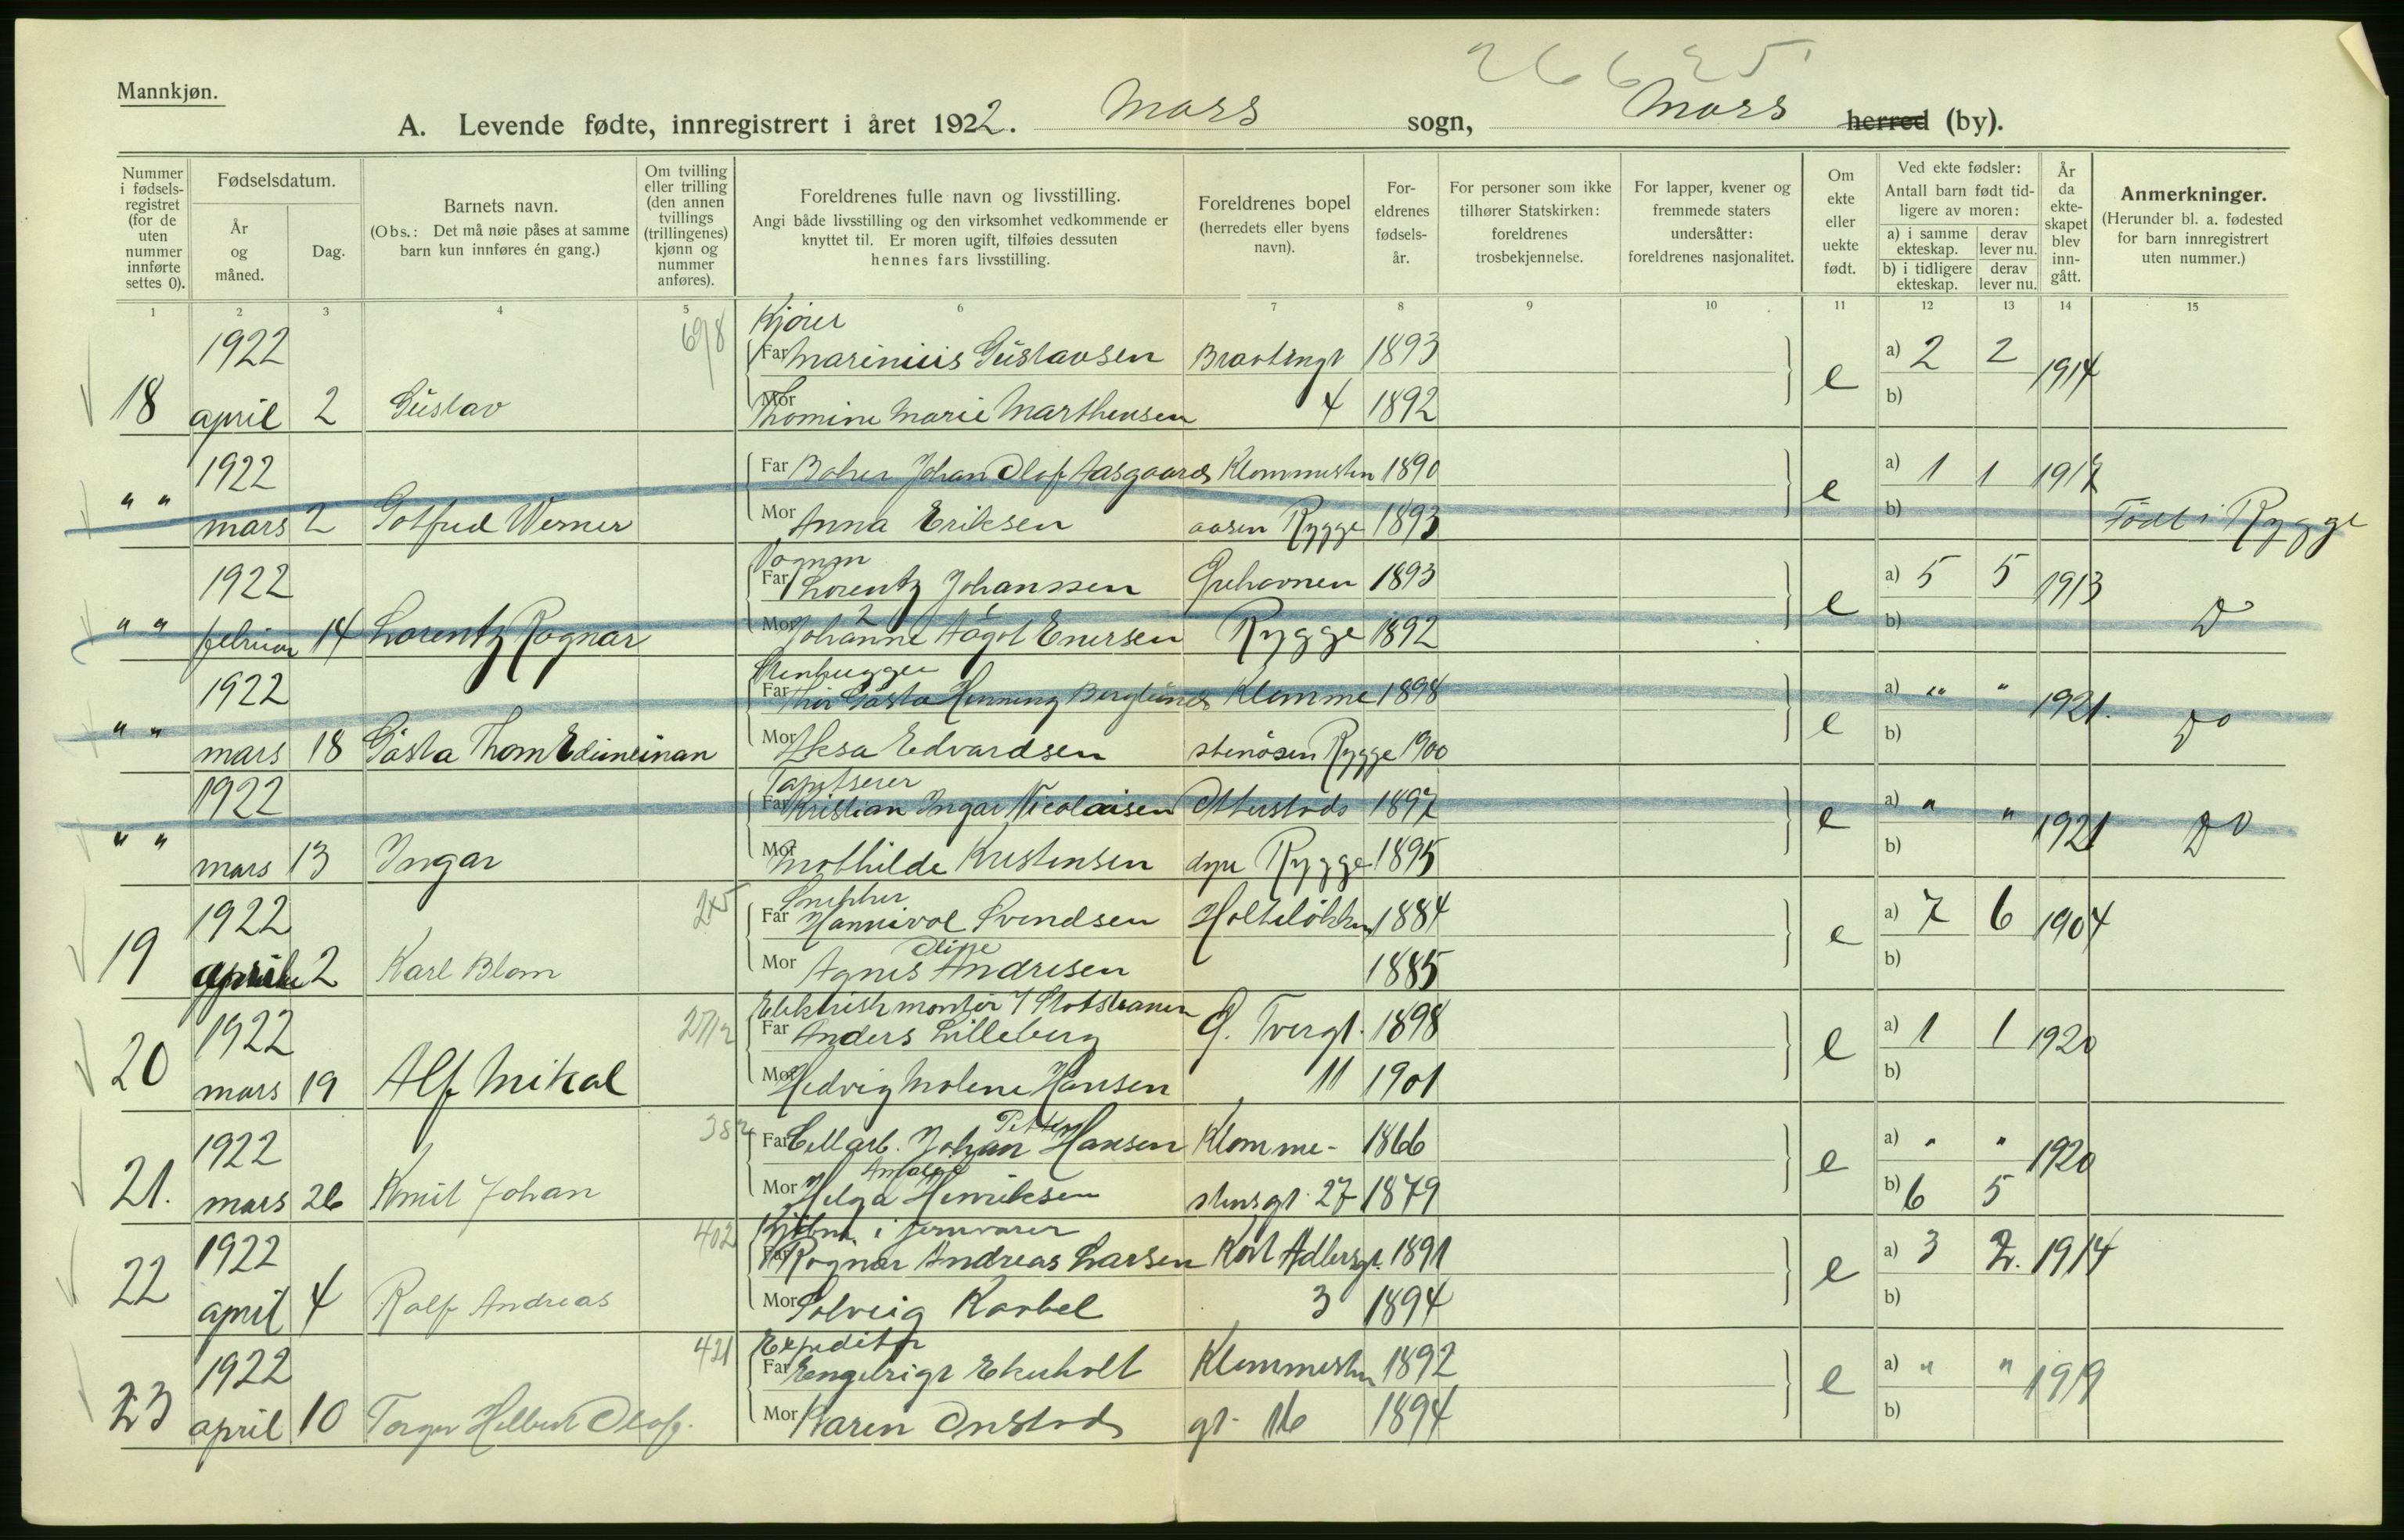 26625
Mannkjøn.
A. Levende fødte, innregistrert i året 1922. Moss sogn, Moss herred (by).
Nummer i fødsels-registret (for de uten nummer innførte settes 0).
Fødselsdatum.
År og måned.
Dag.
Barnets navn.
(Obs.: Det må nøie påses at samme barn kun innføres én gang.)
Om tvilling eller trilling (den annen tvillings (trillingenes) kjønn og nummer anføres).
Foreldrenes fulle navn og livsstilling.
Angi både livsstilling og den virksomhet vedkommende er knyttet til. Er moren ugift, tilføies dessuten hennes fars livsstilling.
Foreldrenes bopel (herredets eller byens navn).
For-eldrenes fødsels-år.
For personer som ikke tilhører Statskirken: foreldrenes trosbekjennelse.
For lapper, kvener og fremmede staters undersåtter: foreldrenes nasjonalitet.
Om ekte eller uekte født.
Ved ekte fødsler:
Antall barn født tid-ligere av moren:
a) i samme ekteskap.
derav lever nu.
b) i tidligere ekteskap.
derav lever nu.
År da ekte-skapet blev inn-gått.
Anmerkninger.
(Herunder bl. a. fødested for barn innregistrert uten nummer.)
1 2 3 4 5 6 7 8 9 10 11 12 13 14 15
Kjører
1922 Far Marinius Gustavsen 1893 a) 2 2
18 april 2 Gustav Mor Thomine Marie Marthensen 4 1892 e b) 1914
1922 Far Johan Olaf Aasgaard Klommesten 1890 a) 1 1 1917
" " mars 2 Gotfred Werner Mor Anna Eriksen aasen Rygge 1893 e b) Født i Rygge
Vognm
1922 Far Lorentz Johanssen 1893 a) 5 5 1913
" " februar 14 Lorentz Ragnar Mor Johanne Aagot Enersen Rygge 1892 e b) Do
Stenhugger
1922 Far Thor Gösta Henning Berglund Klomme 1898 a) " " 1921.
" " mars 18 Gösta Thom Mor Aksa Edvardsen stenåsen Rygge 1900 e b) Do
Tapetserer
1922 Far Kristian Ingar Nicolaisen Otterstads 1897 a) " " 1921
" " mars 13 Ingar Mor Mathilde Kristensen Rygge 1895 e b) Do
245
Snekker
1922 Far Hannival Svendsen 1884 a) 7 6 1904
Oline
19 april 2 Karl Blom Mor Agnes Andresen 1885 e b)
Elektrisk montør
1922 Far Anders Lilleberg G. Tvergt. 1898 a) 1 1 1920
20 mars 19 Alf Mikal Mor Hedvig Malene Hansen 11 1901 e b)
382
Petter
1922 Far Cellarb. Johan Hansen Klomme- 1866 a) " " 1920
Amalie
21. mars 26 Knut Johan Mor Helga Henriksen stensgt. 27 1879 e b) 6 5
402
Kjøbm. i jernvarer
1922 Far Ragnar Andreas Larsen Karl Adlersgt. 1891 a) 3 2. 1914
22 april 4 Rolf Andreas Mor Solveig Karbel 3 1894 e b)
421
Expeditør
1922 Far Engebrigt Ekeholt Klommesten 1892 a) " " 1919
23 april 10 Mor Karen Onstad gt. 16 1894 e b)